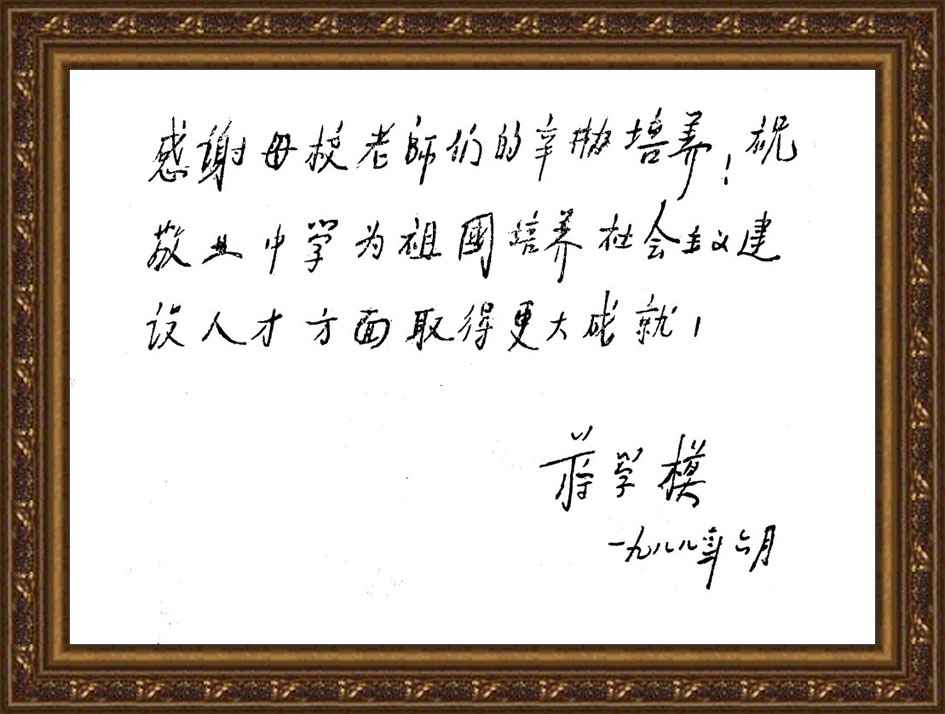 感谢母校老師们的辛勤培养！祝
敬业中学为祖國培养社会主义建
设人才方面取得更大成就！
蒋学模
一九八八年六月